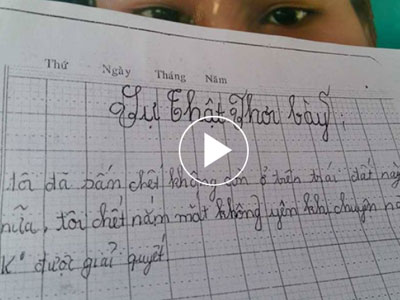 Thứ Ngày Tháng Năm
Sự Thật Phơi bày;
tôi đã sắp chết không còn ở trên trái đất này
nữa, tôi chết nắm mắt không yên khi chuyện nà
K° được giải quyết